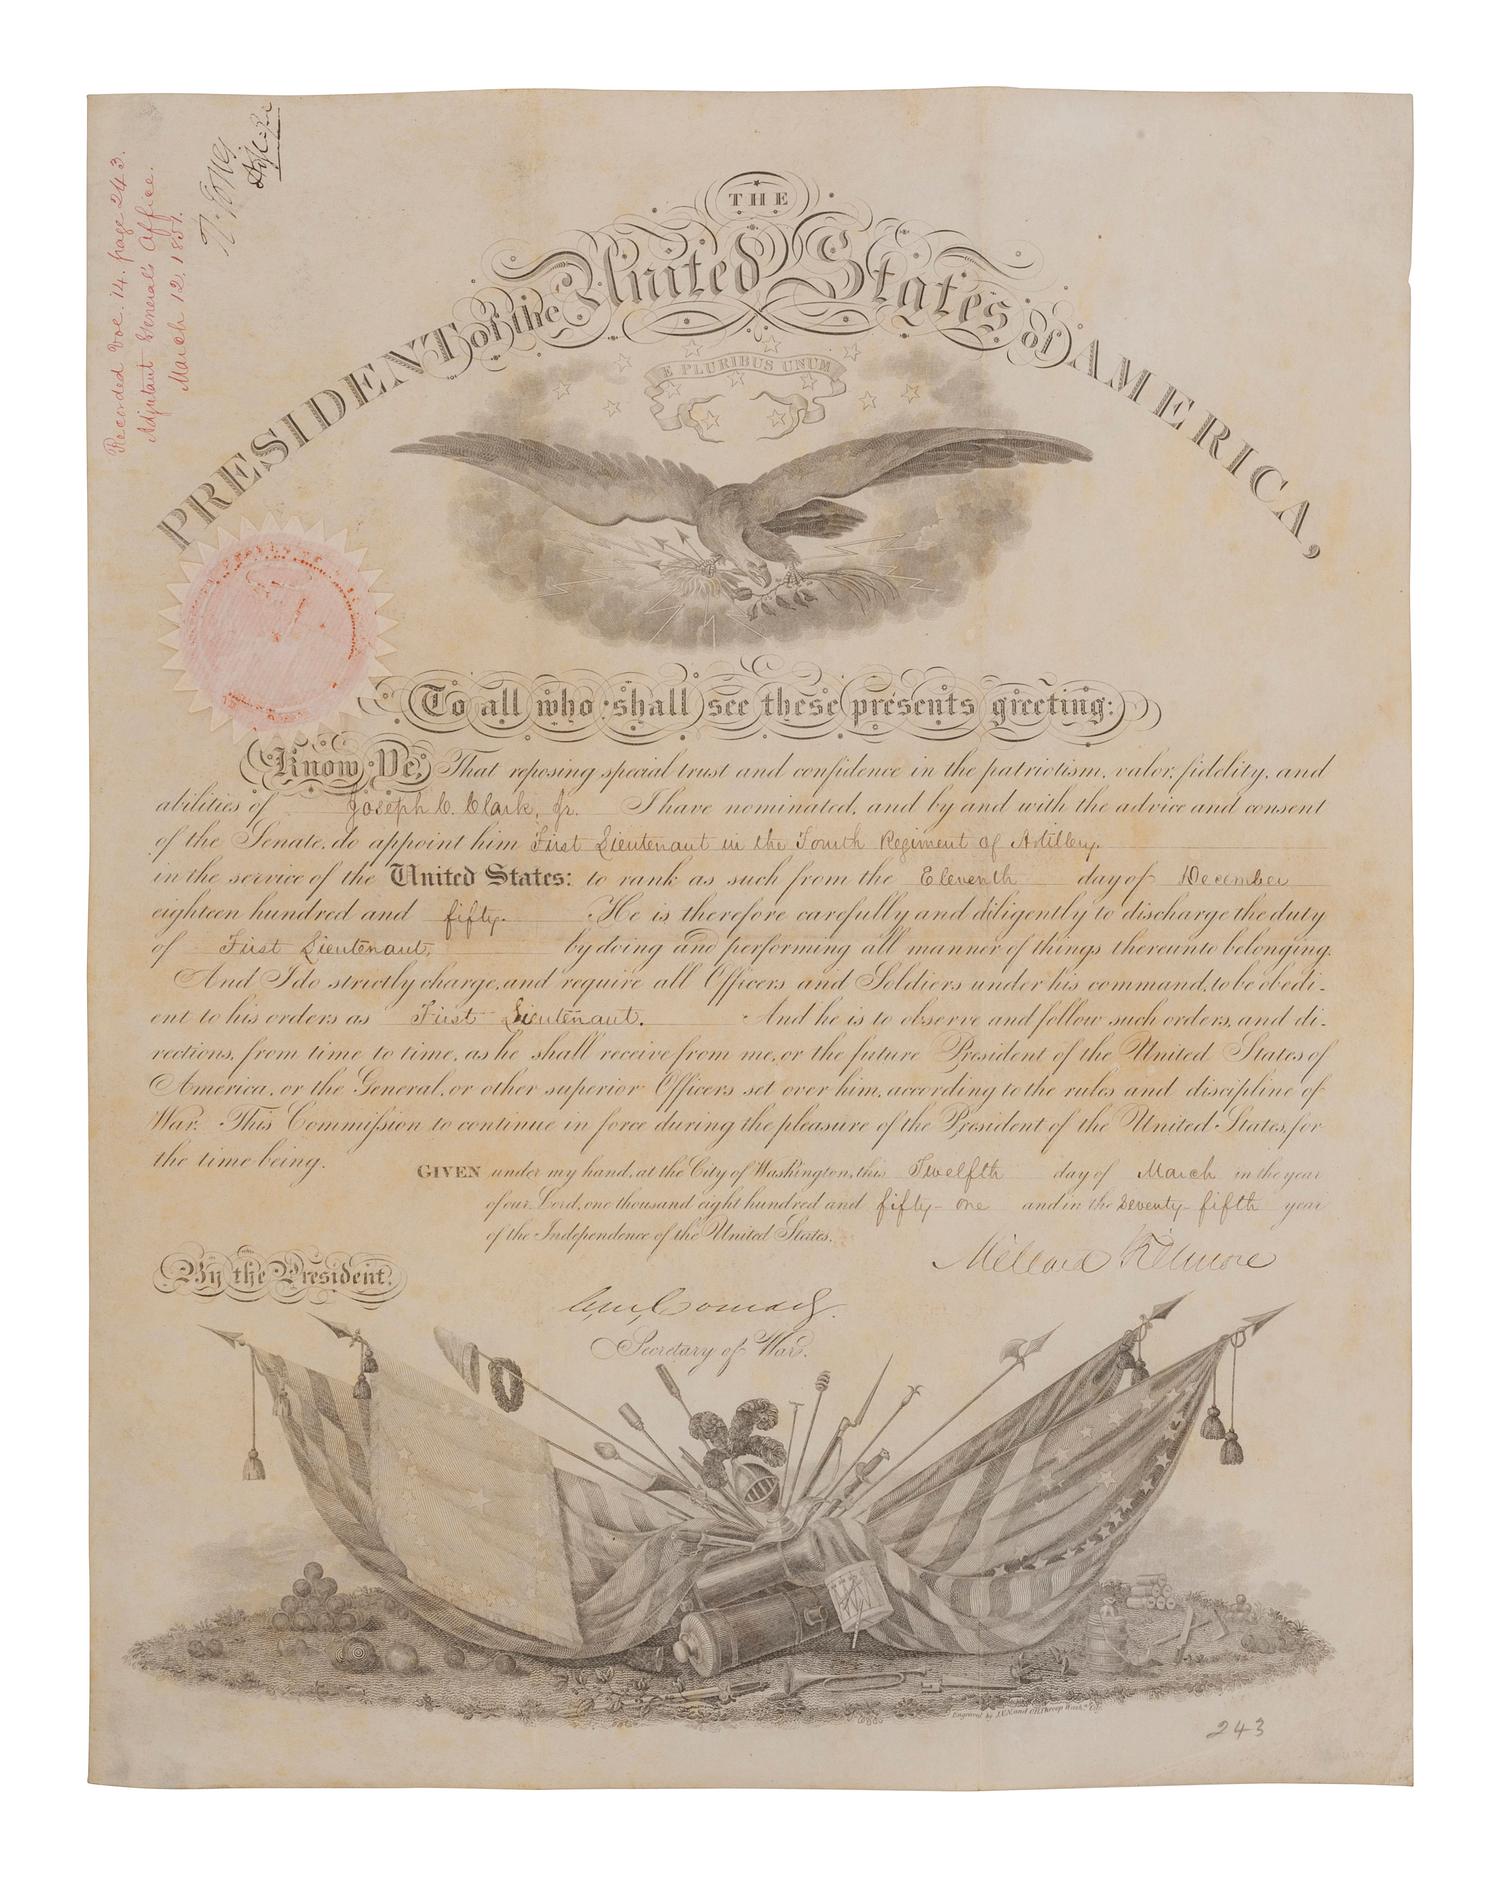 Recorded Vol. 14. page 243.
Adjutant General's Office.
March 12. 1851.
THE
PRESIDENT of the United States of AMERICA,
E PLURIBUS UNUM
To all who shall see these presents greeting:
Know Ye, That reposing special trust and confidence in the patriotism, valor, fidelity, and
abilities of Joseph C. Clark, Jr. I have nominated, and by and with the advice and consent
of the Senate, do appoint him First Lieutenant in the Fourth Regiment of Artillery.
in the service of the United States: to rank as such from the Eleventh day of December
eighteen hundred and fifty. He is therefore carefully and diligently to discharge the duty
of First Lieutenant, by doing and performing all manner of things thereunto belonging.
And I do strictly charge, and require all Officers and Soldiers under his command, to be obedi-
ent to his orders as First Lieutenant. And he is to observe and follow such orders, and di-
rections, from time to time, as he shall receive from me, or the future President of the United States of
America, or the General, or other superior Officers set over him, according to the rules and discipline of
War. This Commission to continue in force during the pleasure of the President of the United States, for
the time being.
GIVEN under my hand, at the City of Washington, this Twelfth day of March in the year
of our Lord, one thousand eight hundred and fifty-one and in the Seventy-fifth year
of the Independence of the United States.
Millard Fillmore
By the President.
C. M. Conrad
Secretary of War.
Engraved by J.V.N. and O.H. Throop Wash.n City.
243